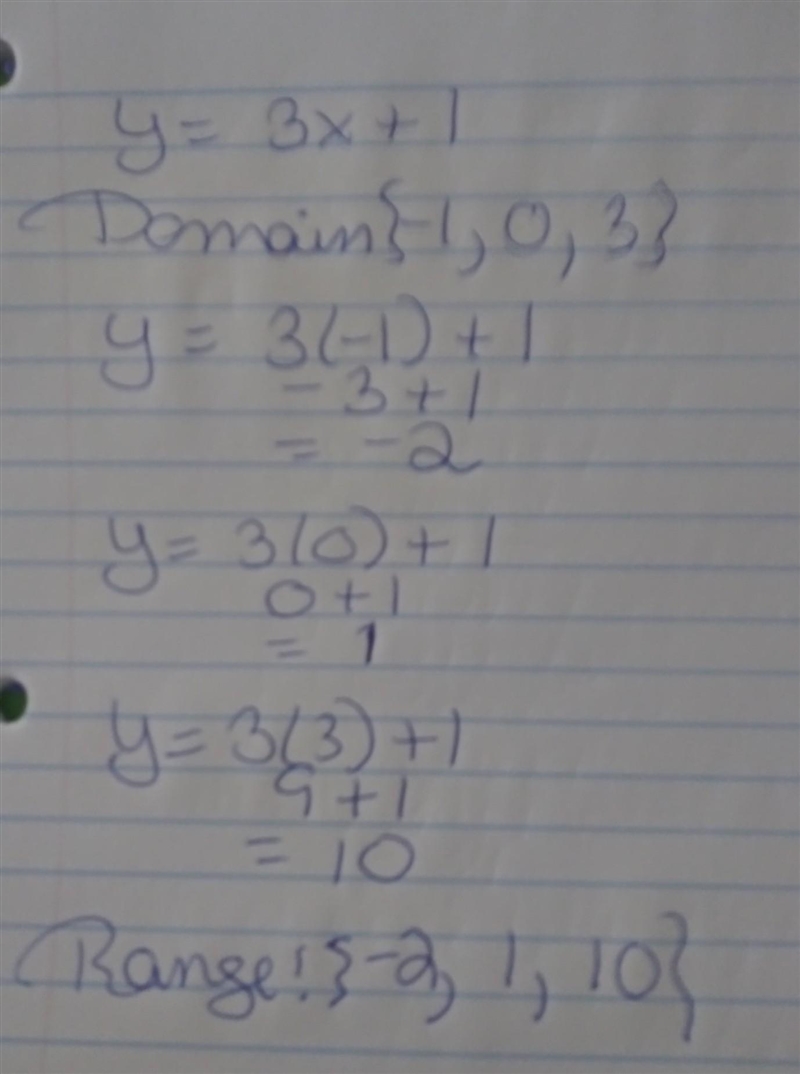 y = 3x + 1
Domain{-1, 0, 3}
y = 3(-1) + 1
-3+1
= -2
y = 3(0) + 1
0+1
= 1
y = 3(3) + 1
9+1
= 10
Range: {-2, 1, 10}